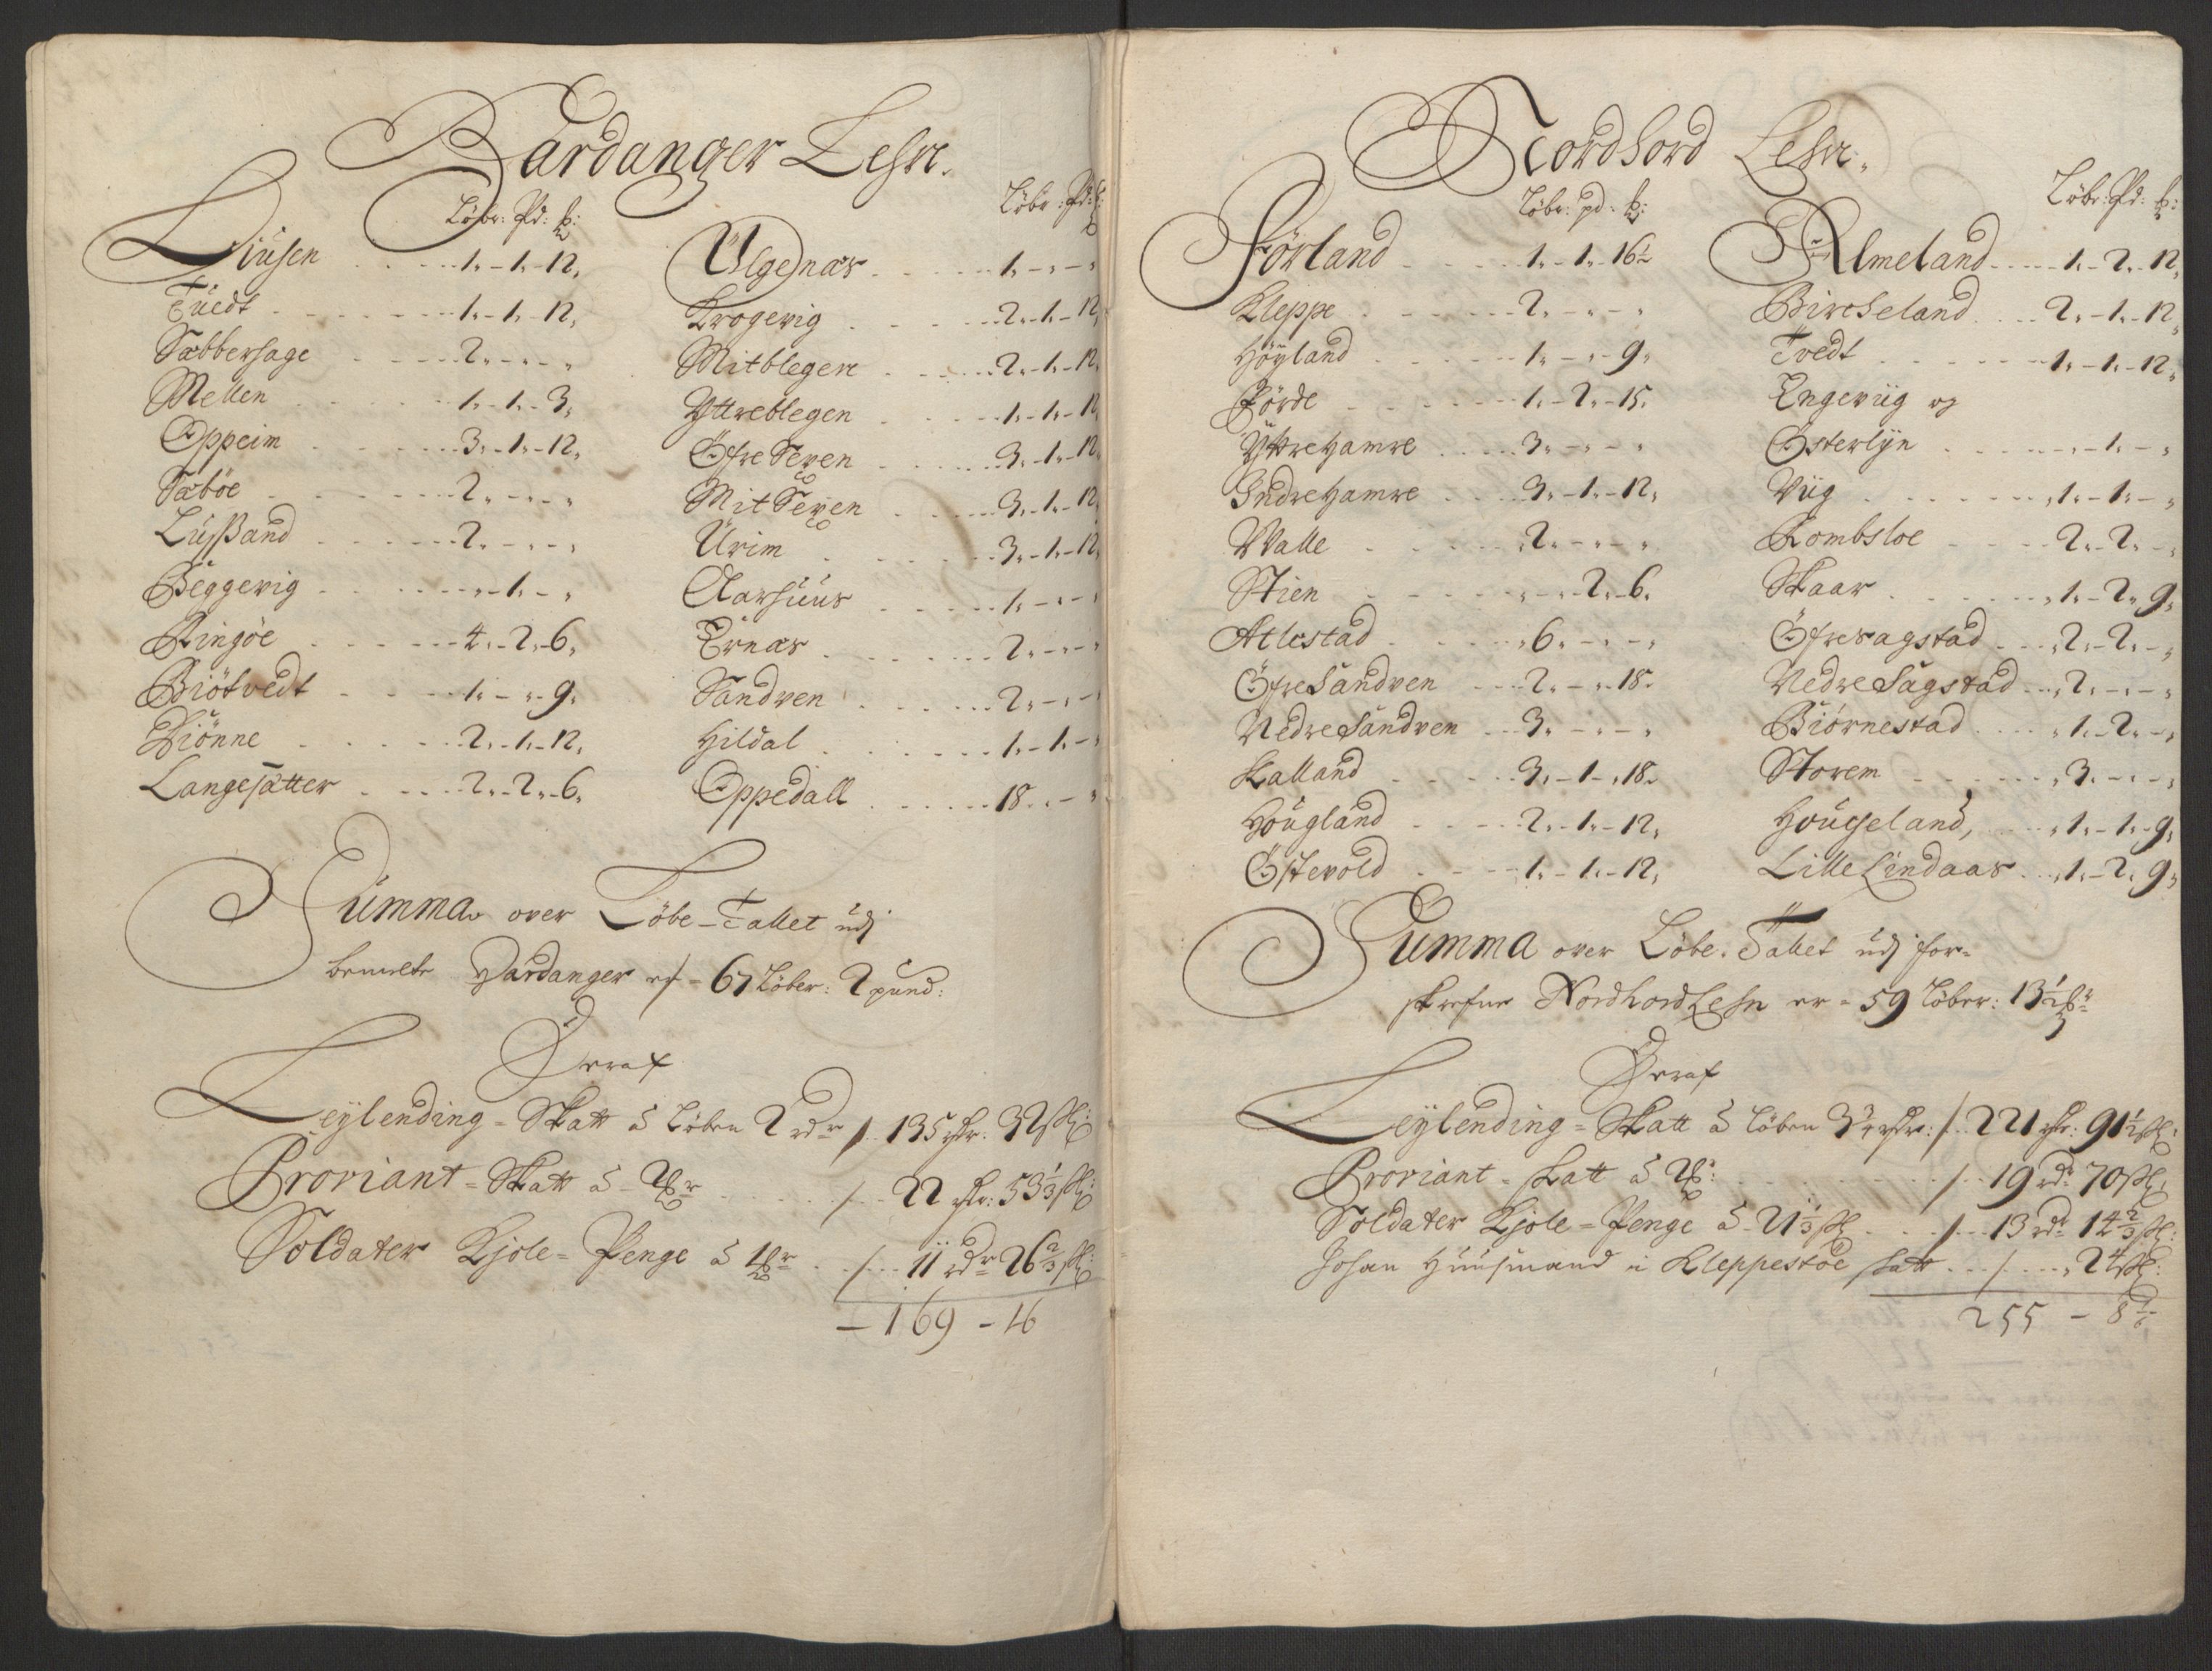 Hardanger Lehn.
Löber: Pd: ℔:
Diusen 1. - 1. - 12.
Tuedt 1. - 1. - 12.
Sæbberhage 2. - " - "
Mellen 1. - 1. - 3.
Oppeim 3. - 1. - 12.
Sæböe 2. - " - "
Lussand 2. - " - "
Beggevig " - 1. - "
Ringöe 4. - 2. - 6.
Biötvedt 1. - " - 9.
Diönne 2. - 1. - 12.
Langesætter 2. - 2. - 6.
Löbr: Pd: ℔:
Ulgenæs 1. - " - "
Krogevig 2. - 1. - 12.
Mitblegen 2. - 1. - 12.
Yttreblegen 1. - 1. - 12.
Öfre Sexen 3. - 1. - 12.
Mit Sexen 3. - 1. - 12.
Urim 3. - 1. - 12.
Aarhuus 1. - " - "
Ernæs 2. - " - "
Sandven 2. - " - "
Hildal 1. - 1. - "
Oppedall 18. - " - "
Summa over Löbe-Tallet udj
bemelte Hardanger er - 67 Löber: 2 pund:
Deraf
Leylending-Skatt â Löben 2 rdr / 135 rdr: 32 sk:
Proviant-Skatt â 2 ℔r / 22 rdr: 53 1/3 sk:
Soldater Kjole-Penge â 1 ℔r / 11 rdr 26 2/3 sk:
169 - 16
Nordhord Lehn.
Löbr: pd: ℔:
Förland 1. - 1. - 16 1/2
Kleppe 2. - " - "
Höyland 1. - " - 9.
Förde 1. - 2. - 15.
Yttre Hamre 3. - " - "
Indre Hamre 3. - 1. - 12.
Walle 2. - " - "
Stien " - 2. - 6.
Atlestad 6. - " - "
Öfre Sandven 2. - " - 18.
Nedre Sandven 3. - " - "
Kalland 3. - 1 - 18.
Hougland 2. - 1. - 12.
Östevold 1. - 1. - 12.
Löbr: Pd: ℔:
Almeland 1. - 2. - 12.
Bircheland 2. - 1. - 12.
Tvedt 1. - 1. - 12.
Engeviig og
Österlyn " - 1. - "
Viig 1. - 1. - "
Rombsloe 2. - 2. - "
Skaar 1. - 2. 9.
Öfresagstad 2. - 2. - "
Nedre Sagstad 2. - " - "
Biörnestad 1. - 2. - "
Storem 3. - " - "
Hougeland, 1. - 1. - 9.
Lille Lindaas 1. - 2. 9.
Summa over Löbe-Tallet udj for-
skrefne Nordhord Lehn er - 59 Löber: 13 1/2 ℔r
Deraf
Leylending-Skatt â Löben 3 3/4 rdr: / 221 rdr: 91 1/2 sk:
Proviant-skatt â 2 ℔: / 19 rdr 70 sk:
Soldater Kjole-Penge â 21 1/3 sk / 13 rdr 14 2/3 sk:
Johan Huusmand i Kleppestöe skatt / " 24 sk:
255 - 8 1/6